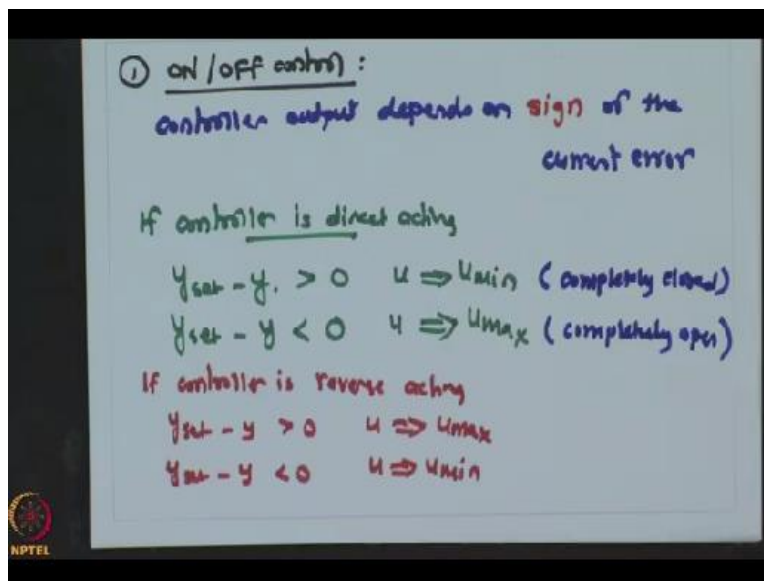 ① ON/OFF control:
controller output depends on sign of the
current error
If controller is direct acting
yset - y. > 0 u ⇒ umin (completely closed)
yset - y < 0 u ⇒ umax (completely open)
If controller is reverse acting
yset - y > 0 u ⇒ umax
yset - y < 0 u ⇒ umin
NPTEL